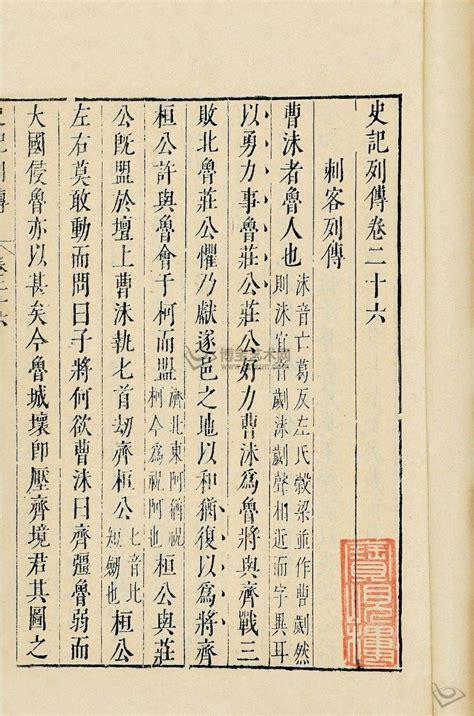 史記列傳卷二十六
刺客列傳
曹沬者魯人也
沬音亡葛反左氏穀梁並作曹劌然
則沬宜音劌沬劌聲相近而字異耳
以勇力事魯莊公莊公好力曹沬爲魯將與齊戰三
敗北魯莊公懼乃獻遂邑之地以和猶復以爲將齊
桓公許與魯會于柯而盟
濟北東阿猶
柯今爲祝阿也
桓公與莊
公既盟於壇上曹沬執匕首劫齊桓公
匕音比
短劒也
桓公
左右莫敢動而問曰子將何欲曹沬曰齊彊魯弱而
大國侵魯亦以甚矣今魯城壞即壓齊境君其圖之
博宝艺术网